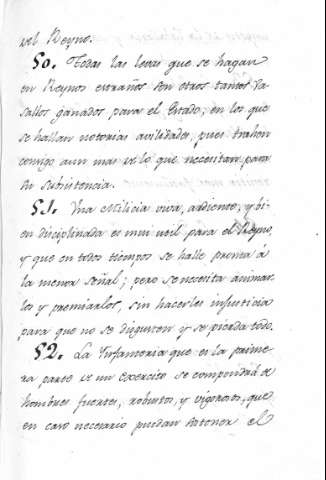 del Reyno.
50. Todas las levas que se hagan
en Reynos estraños son otros tantos Va-
sallos ganados para el Estado; en los que
se hallan notorias avilidades, pues trahen
consigo aun mas de lo que necesitan para
su subsistencia.
51. Una Milicia viva, ardiente, y bi-
en disciplinada es mui util para el Reyno,
y que en todos tiempos se halle pronta á
la menor señal; pero se necesita animar-
los y premiarlos, sin hacerles injusticia
para que no se disgusten y se pierda todo.
52. La Infanteria que es la prime-
ra parte de un Exercito se compondrá de
hombres fuertes, robustos, y vigorosos, que
en caso necesario puedan sostener el